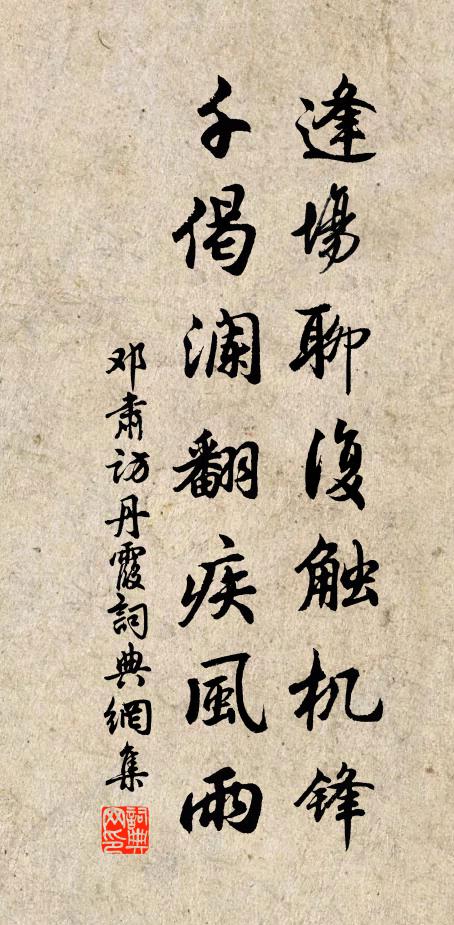 逢場聊復触机锋
千偈澜翻疾風雨
邓肅访丹霞詞典網集
詞典网印